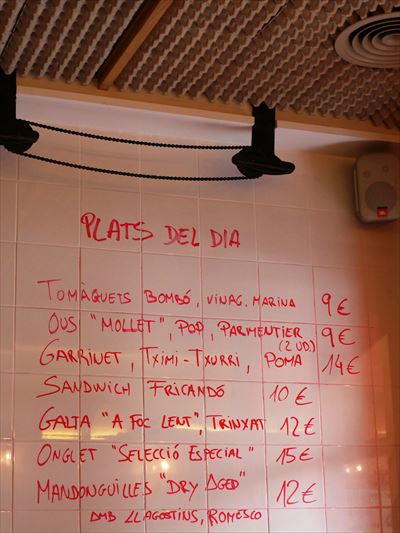 PLATS DEL DIA
TOMÀQUETS BOMBÓ, VINAG. MARINA 9€
OUS "MOLLET", POP, PARMENTIER 9€
(2 UD.)
GARRINET, TXIMI-TXURRI, POMA 14€
SANDWICH FRICANDÓ 10€
GALTA "A FOC LENT", TRINXAT 12€
ONGLET "SELECCIÓ ESPECIAL" 15€
MANDONGUILLES "DRY AGED" 12€
AMB LLAGOSTINS, ROMESCO